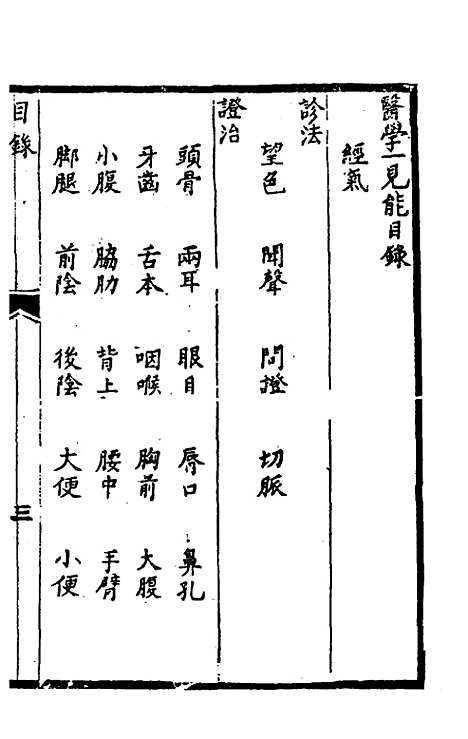 醫學一見能目錄
經氣
診法
望色 聞聲 問證 切脈
證治
頭骨 兩耳 眼目 唇口 鼻孔
牙齒 舌本 咽喉 胸前 大腹
小腹 脇肋 背上 腰中 手臂
脚腿 前陰 後陰 大便 小便
目錄 三